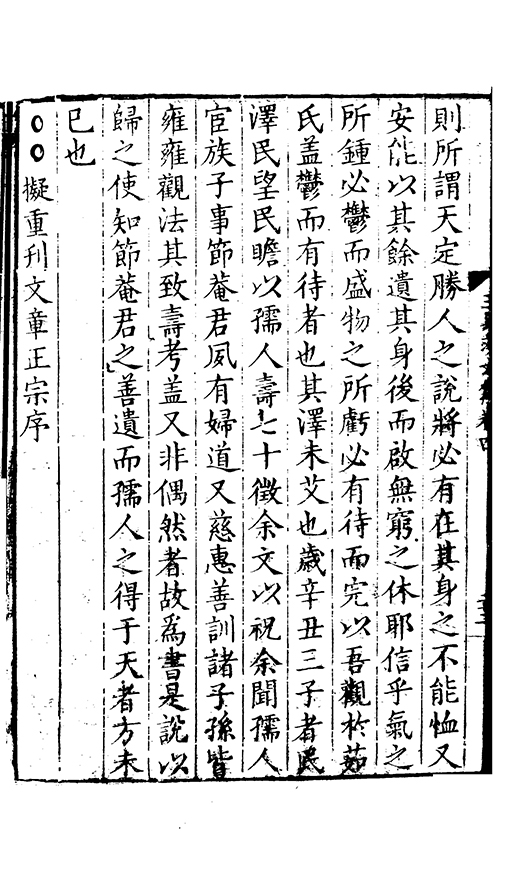 則所謂天定勝人之說將必有在其身之不能恤又
安能以其餘遺其身後而啟無窮之休耶信乎氣之
所鍾必鬱而盛物之所虧必有待而完以吾觀於茹
氏盖鬱而有待者也其澤未艾也歲辛丑三子者民
澤民望民瞻以孺人壽七十徵余文以祝余聞孺人
宦族子事節菴君夙有婦道又慈惠善訓諸子孫皆
雍雍觀法其致壽考盖又非偶然者故為書是說以
歸之使知節菴君之善遺而孺人之得于天者方未
已也
擬重刊文章正宗序